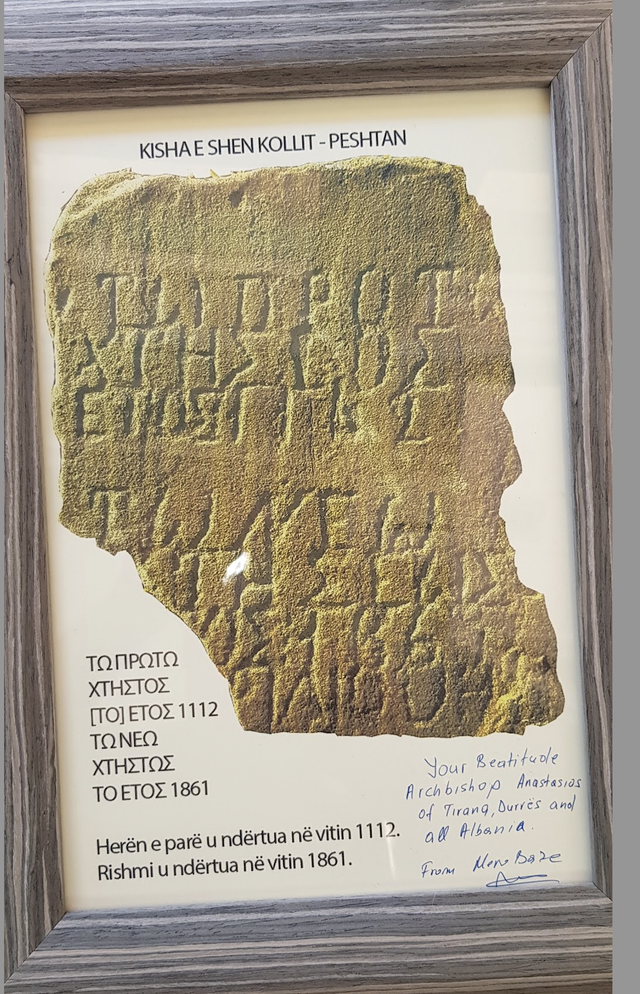 KISHA E SHEN KOLLIT - PESHTAN
ΤΩΙΠΡΟΤ
ΕΤΟΣ
ΤΩΝΕΩ
ΤΩ ΠΡΩΤΩ
ΧΤΗΣΤΟΣ
[ΤΟ] ΕΤΟΣ 1112
ΤΩ ΝΕΩ
ΧΤΗΣΤΩΣ
ΤΟ ΕΤΟΣ 1861
Herën e parë u ndërtua në vitin 1112.
Rishmi u ndërtua në vitin 1861.
Your Beatitude
Archbishop Anastasios
of Tirana, Durrës and
all Albania.
From